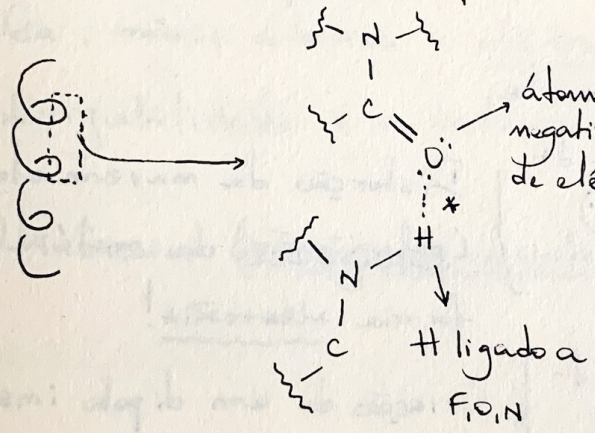 N
C
O
átom
negati
de elé
*
H
N
C
H ligado a
F, O, N